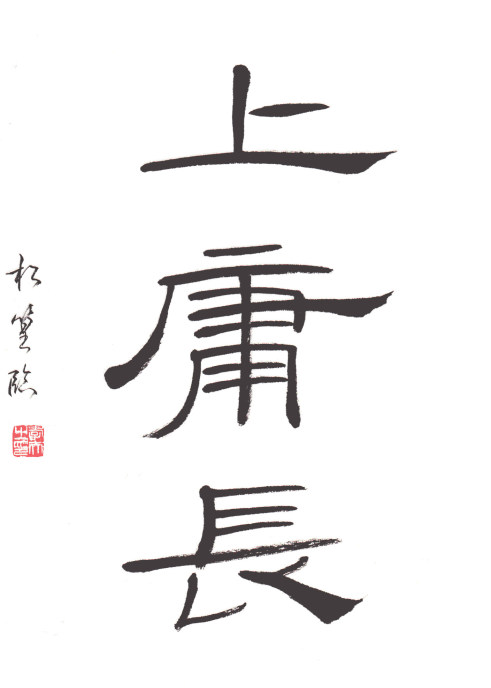 上庸長
松笙臨